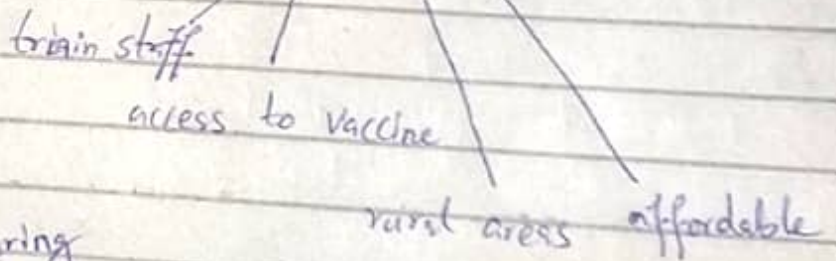 train staff
access to vaccine
rural areas affordable
ring